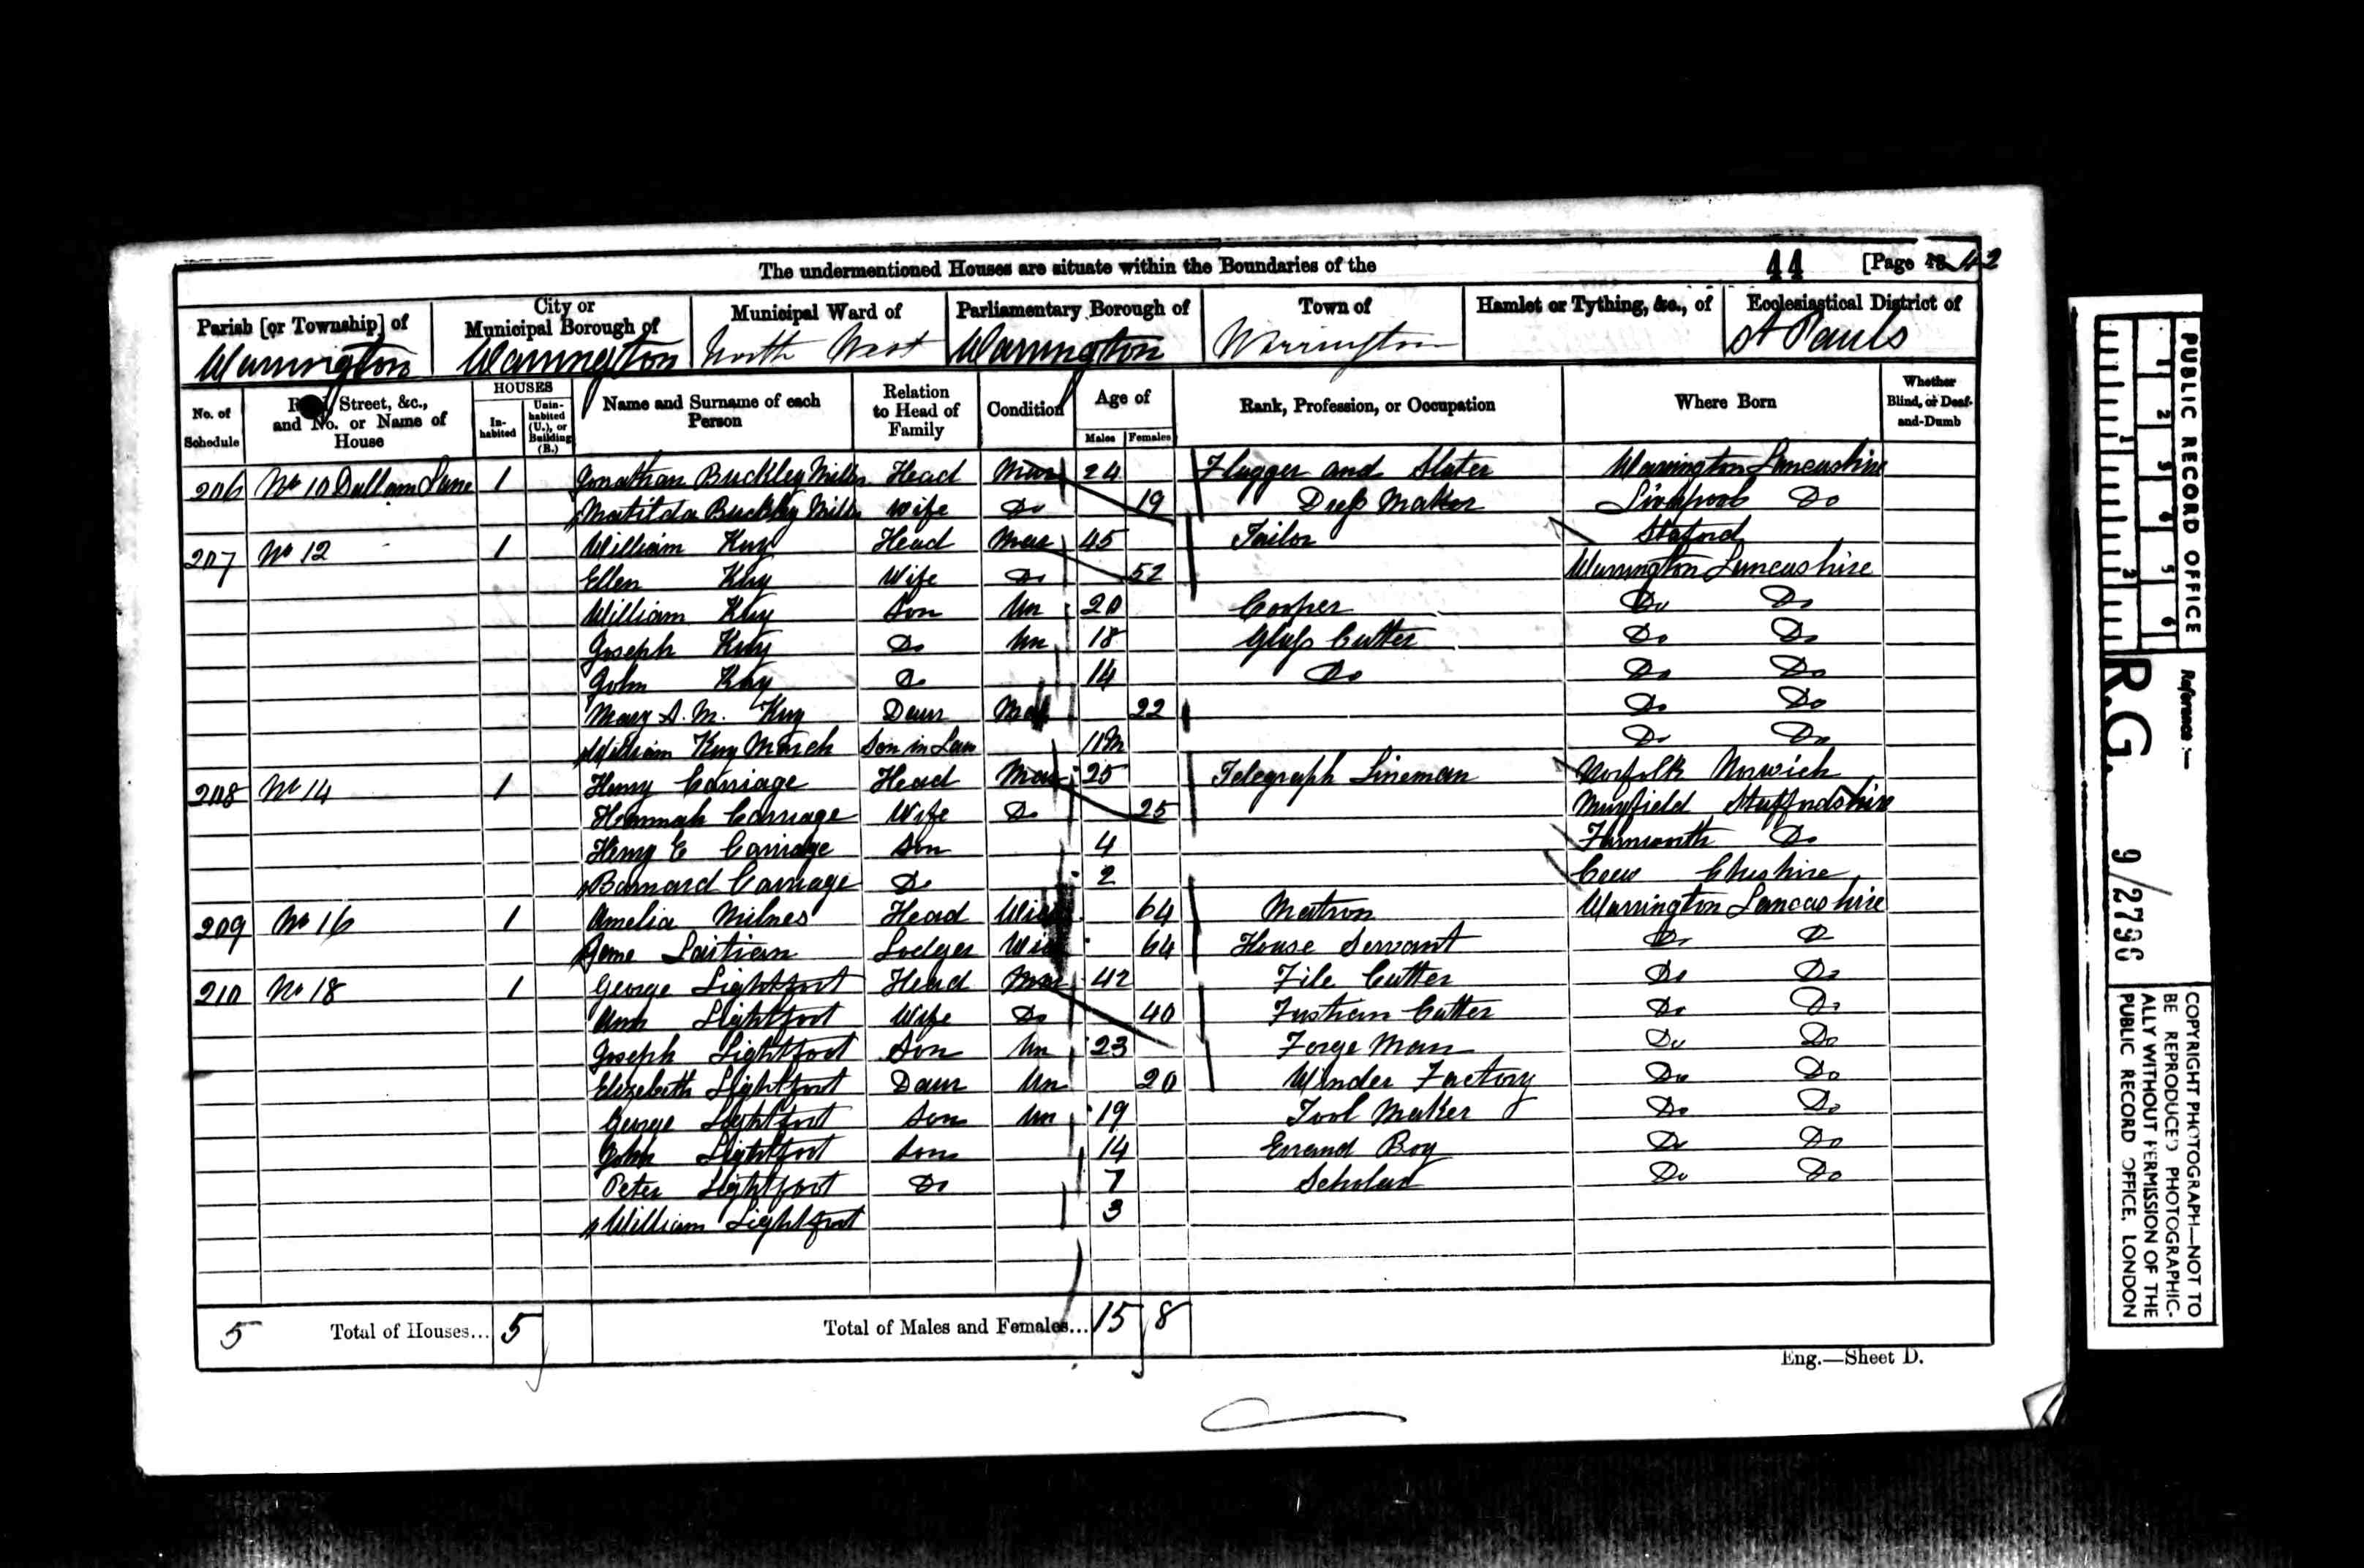 The undermentioned Houses are situate within the Boundaries of the 44 [Page 42
Parish [or Township] of City or Municipal Borough of Municipal Ward of Parliamentary Borough of Town of Hamlet or Tything, &c., of Ecclesiastical District of
Warrington Warrington North West Warrington Warrington St Pauls
No. of Schedule Road, Street, &c., and No. or Name of House HOUSES Inhabited Uninhabited (U.), or Building (B.) Name and Surname of each Person Relation to Head of Family Condition Age of Males Females Rank, Profession, or Occupation Where Born Whether Blind, or Deaf-and-Dumb
206 No 10 Dallam Lane 1 Jonathan Buckley Mills Head Mar 24 Flagger and Slater Warrington Lancashire
Matilda Buckley Mills Wife Do 19 Dress Maker Liverpool Do
207 No 12 1 William Kay Head Mar 45 Tailor Staford
Ellen Kay Wife Do 52 Warrington Lancashire
William Kay Son Un 20 Cooper Do Do
Joseph Kay Do Un 18 Glass Cutter Do Do
John Kay Do 14 Do Do Do
Mary A. M. Kay Daur 22 Do Do
William Kay March Son in Law 11 M Do Do
208 No 14 1 Henry Carriage Head Mar 25 Telegraph Lineman Norfolk Norwich
Hannah Carriage Wife Do 25 Mayfield Staffordshire
Henry E Carriage Son 4 Do
Barnard Carriage Do 2 Crew Cheshire
209 No 16 1 Amelia Milnes Head Wid 64 Matron Warrington Lancashire
Jane Lodger Wid 64 House Servant Do Do
210 No 18 1 George Lightfoot Head Mar 42 File Cutter Do Do
Ann Lightfoot Wife Do 40 Fustian Cutter Do Do
Joseph Lightfoot Son Un 23 Forge Man Do Do
Elizabeth Lightfoot Daur Un 20 Winder Factory Do Do
George Lightfoot Son Un 19 Tool Maker Do Do
John Lightfoot Son 14 Errand Boy Do Do
Peter Lightfoot Do 7 Scholar Do Do
William Lightfoot 3
5 Total of Houses... 5 Total of Males and Females... 15 8
Eng.—Sheet D.
PUBLIC RECORD OFFICE
1 2 3 4 5 6
1 2 3
Reference :—
R.G. 9/2796
COPYRIGHT PHOTOGRAPH—NOT TO
BE REPRODUCED PHOTOGRAPHIC-
ALLY WITHOUT PERMISSION OF THE
PUBLIC RECORD OFFICE, LONDON